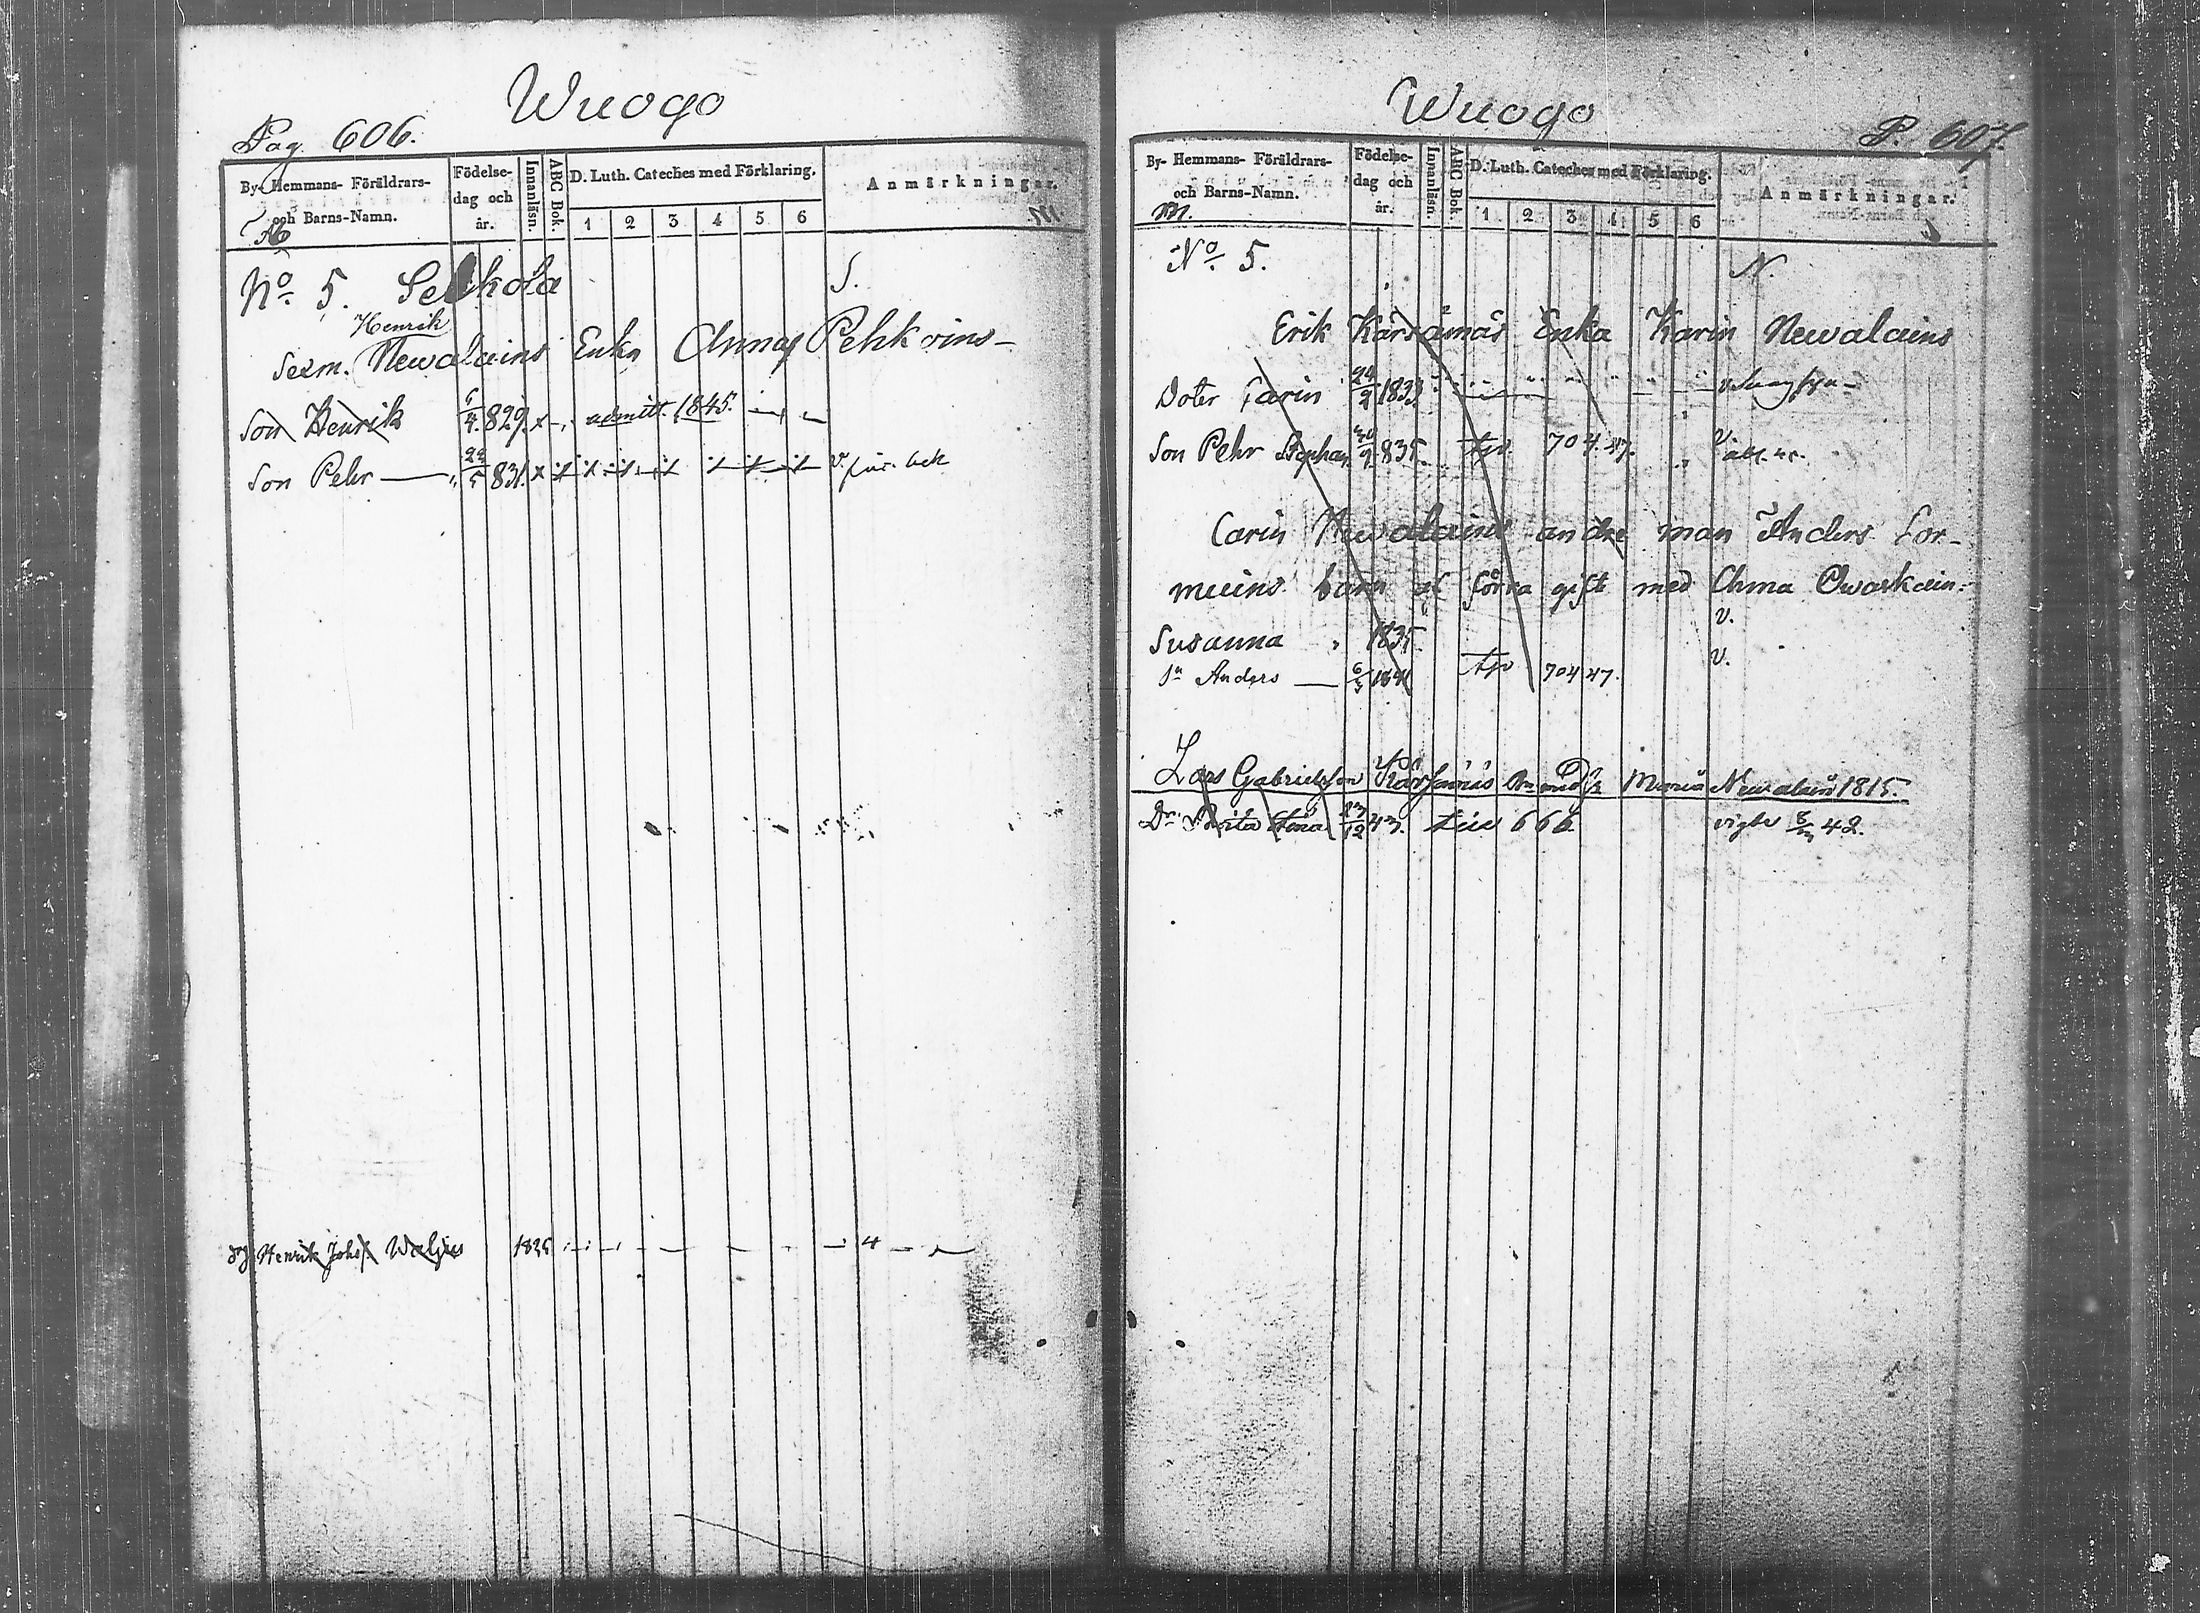 Wuogo
Pag. 606.
By- Hemmans- Föräldrars-
och Barns-Namn.
Födelse-
dag och
år.
Innanläsn.
ABC Bok.
D. Luth. Cateches med Förklaring.
1 2 3 4 5 6
Anmärkningar.
No. 5. S.
Henrik
Sexm. Newalains Enka Anna Pehkoins
Son Henrik 829. x admitt. 1845.
Son Pehr 22/5 831. x
Henrik Johs Waljus 1825 4
Wuogo
P. 607.
By- Hemmans- Föräldrars-
och Barns-Namn.
Födelse-
dag och
år.
Innanläsn.
ABC Bok.
D. Luth. Cateches med Förklaring.
1 2 3 4 5 6
Anmärkningar.
No. 5. N.
Erik Kärsämäs Enka Karin Newalains
Doter Carin 24/2 1833
Son Pehr Stephan 835. 704. 47. v.
Carin Newalains andre man Anders Cor-
muins barn af förra gifte med Anna Owaskain:
Susanna 1835. v.
Anders 704 47. v.
Lars Gabrielsson Kärsämäs Maria Newalain 1815.
Dr. Brita Stina 23/12 43. 666. vigde 42.